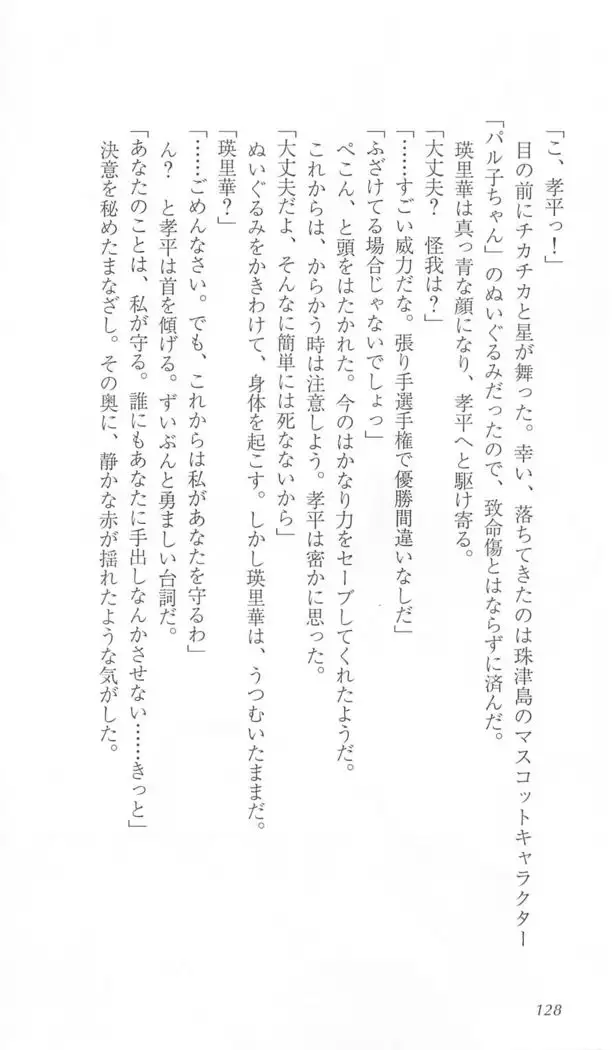 「こ、孝平っ！」
目の前にチカチカと星が舞った。幸い、落ちてきたのは珠津島のマスコットキャラクター
「パル子ちゃん」のぬいぐるみだったので、致命傷とはならずに済んだ。
瑛里華は真っ青な顔になり、孝平へと駆け寄る。
「大丈夫？　怪我は？」
「……すごい威力だな。張り手選手権で優勝間違いなしだ」
「ふざけてる場合じゃないでしょっ」
ぺこん、と頭をはたかれた。今のはかなり力をセーブしてくれたようだ。
これからは、からかう時は注意しよう。孝平は密かに思った。
「大丈夫だよ、そんなに簡単には死なないから」
ぬいぐるみをかきわけて、身体を起こす。しかし瑛里華は、うつむいたままだ。
「瑛里華？」
「……ごめんなさい。でも、これからは私があなたを守るわ」
ん？　と孝平は首を傾げる。ずいぶんと勇ましい台詞だ。
「あなたのことは、私が守る。誰にもあなたに手出しなんかさせない……きっと」
決意を秘めたまなざし。その奥に、静かな赤が揺れたような気がした。
128